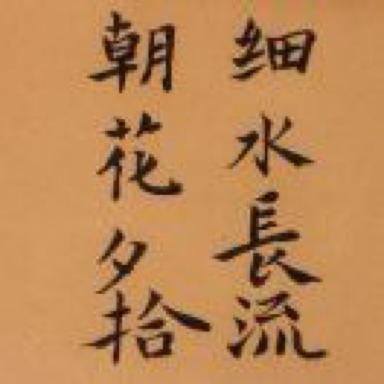 细水長流
朝花夕拾